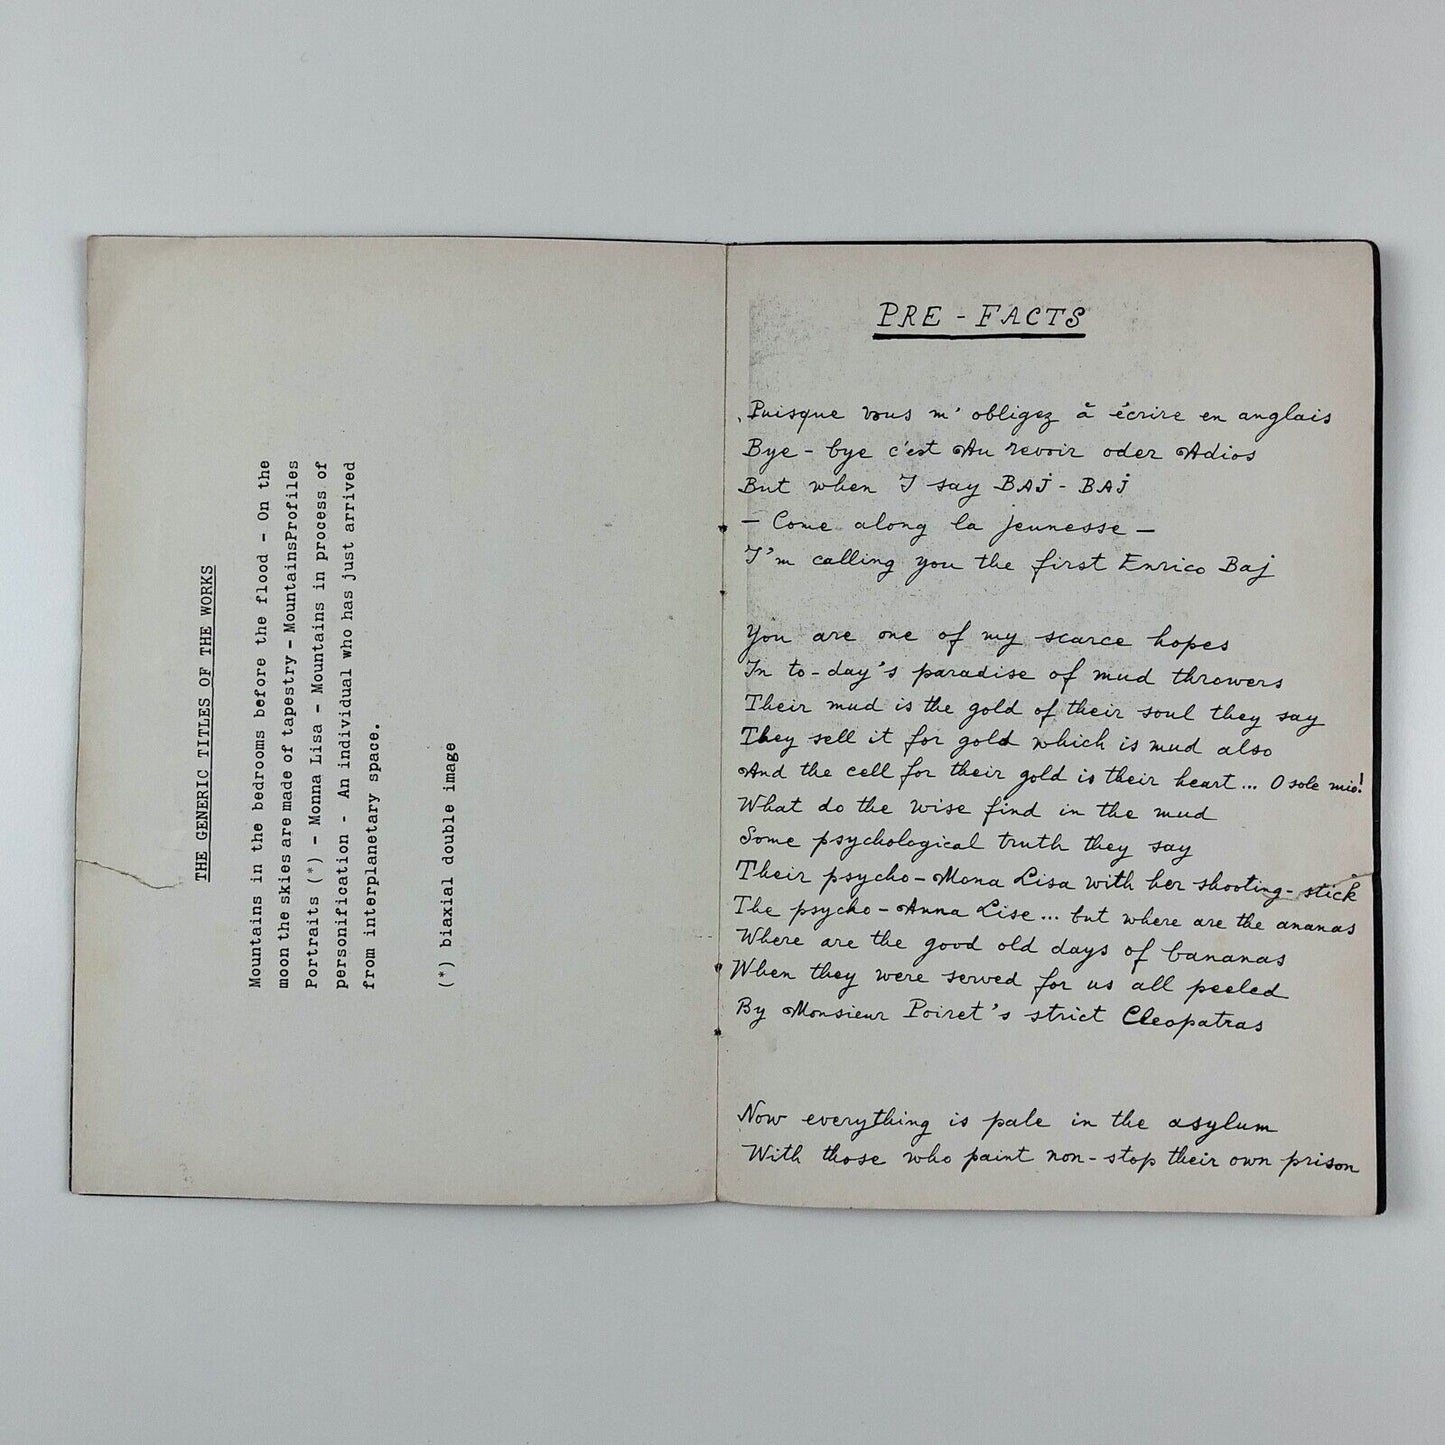 THE GENERIC TITLES OF THE WORKS
Mountains in the bedrooms before the flood - On the
moon the skies are made of tapestry - MountainsProfiles
Portraits (*) - Monna Lisa - Mountains in process of
personification - An individual who has just arrived
from interplanetary space.
(*) biaxial double image
PRE - FACTS
Puisque vous m'obligez à écrire en anglais
Bye - bye c'est Au revoir oder Adios
But when I say BAJ - BAJ
- Come along la jeunesse -
I'm calling you the first Enrico Baj
You are one of my scarce hopes
In to-day's paradise of mud throwers
Their mud is the gold of their soul they say
They sell it for gold which is mud also
And the cell for their gold is their heart... O sole mio!
What do the wise find in the mud
Some psychological truth they say
Their psycho - Mona Lisa with her shooting-stick
The psycho - Anna Lise... but where are the ananas
Where are the good old days of bananas
When they were served for us all peeled
By Monsieur Poiret's strict Cleopatras
Now everything is pale in the asylum
With those who paint non-stop their own prison